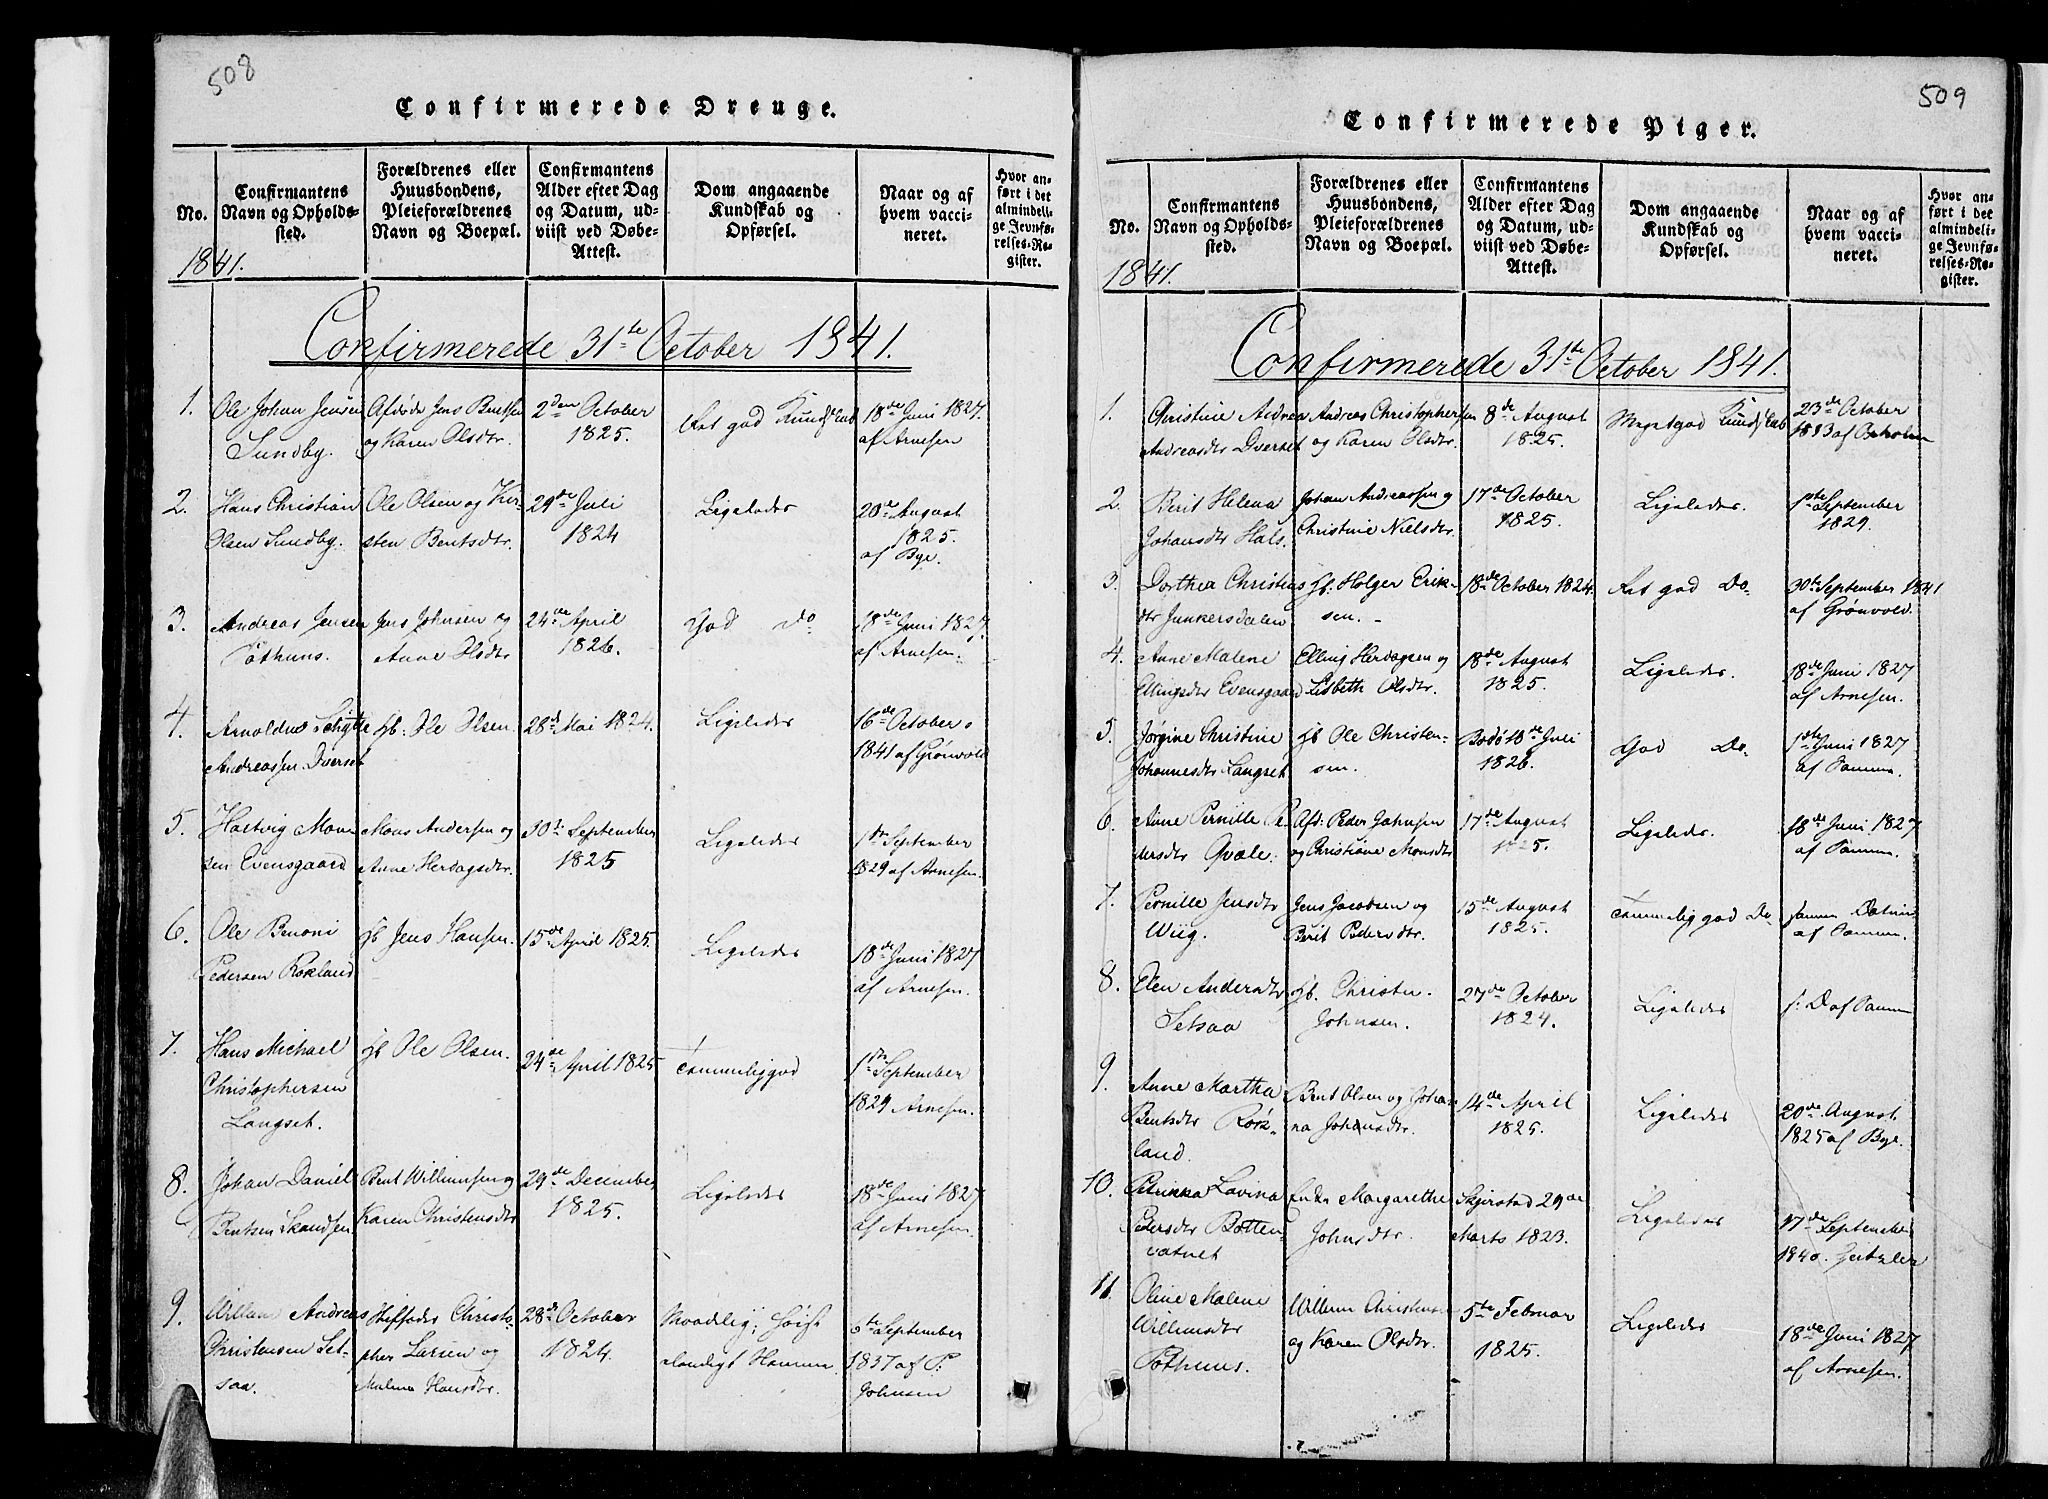 508
Confirmerede Drenge.
No.
Confirmantens
Navn og Opholds-
sted.
Forældrenes eller
Huusbondens,
Pleieforældrenes
Navn og Boepæl.
Confirmantens
Alder efter Dag
og Datum, ud-
viist ved Døbe-
Attest.
Dom angaaende
Kundskab og
Opførsel.
Naar og af
hvem vacci-
neret.
Hvor an-
ført i det
almindeli-
ge Jevnfø-
relses-Re-
gister.
1841.
Confirmerede 31te October 1841.
1.
Ole Johan Jensen
Sundby.
Afdøde Jens Bentsen
og Karen Olsdtr.
2den October
1825.
Ret god Kundskab
18de Juni 1827.
af Arnesen
2.
Hans Christian
Olsen Sundby.
Ole Olsen og Kir-
sten Bentsdtr.
29de Juli
1824
Ligeledes
20de August
1825.
af Bye.
3.
Andreas Jensen
Pothuus.
Jens Johnsen og
Anne Olsdtr
24de April
1826.
God Do
18de Juni 1827.
af Arnesen.
4.
Arnoldus Schytte
Andreassen Dverset
Hb. Ole Olsen.
28d Mai 1824.
Ligeledes
16de October
1841 af Grønvold
5.
Hartvig Mon-
sen Evensgaard
Mons Andersen og
Anne Herdagsdtr.
30te September
1825
Ligeledes
1ste September
1829 af Arnesen.
6.
Ole Benoni
Pedersen Rokland
Hb Jens Hansen.
15de April 1825.
Ligeledes
18de Juni 1827
af Arnesen.
7.
Hans Michael
Christophersen
Langset.
Hb Ole Olsen.
24de April 1825
Temmelig god
1ste September
1829 Arnesen.
8.
Johan Daniel
Bentsen Skandsen
Bent Willumsen og
Karen Christensdtr
29de December
1825.
Ligeledes
18de Juni 1827
af Arnesen.
9.
Willum Andreas
Christensen Set-
saa.
Stiffader Christo-
pher Larsen og
Malene Hansdtr.
28de October
1824.
Maadelig; høist
6te September
1837 af P.
Johnsen
509
Confirmerede Piger.
No.
Confirmantens
Navn og Opholds-
sted.
Forældrenes eller
Huusbondens,
Pleieforældrenes
Navn og Boepæl.
Confirmantens
Alder efter Dag
og Datum, ud-
viist ved Døbe-
Attest.
Dom angaaende
Kundskab og
Opførsel.
Naar og af
hvem vacci-
neret.
Hvor an-
ført i det
almindeli-
ge Jevnfø-
relses-Re-
gister.
1841.
Confirmerede 31te October 1841.
1.
Christine Andrea
Andreasdtr Dverset
Andreas Christophersen
og Karen Olsdtr.
8de August
1825.
Meget god Kundskab
23de October
1833 af
2.
Berit Helena
Johansdtr Hals.
Johan Andreassen og
Christine Nielsdtr.
17de October
1825.
Ligeledes.
1ste September
1829.
3.
Dorthea Christens
dtr Junkersdalen
Hb. Holger Erik-
sen.
18de October 1824.
Ret god Do.
30te September 1841
af Grønvold.
4.
Anne Malene
Ellingsdtr Evensgaard
Elling Herdagsen og
Lisbeth Olsdtr.
18de August
1825.
Ligeledes.
18de Juni 1827
af Arnesen.
5.
Jørgine Christine
Johannesdtr Langset
Hb Ole Christen-
sen.
Bodø 18de Juli
1826.
God Do.
1ste Juni 1827
af Samme.
6.
Anne Pernille Pe-
dersdtr Qvæle.
Afd. Peder Johnsen
og Christiane Monsdtr
17de August
1825.
Ligeledes.
18de Juni 1827
af Samme.
7.
Pernille Jensdtr
Wiig.
Jens Jacobsen og
Berit Pedersdtr.
15de August
1825.
Temmelig god Do
samme Datum
af Samme.
8.
Elen Andersdtr
Setsaa
Hb. Christen
Johnsen.
27de October
1824.
Ligeledes
s. D af Samme
9.
Anne Martha
Bentsdtr Røk-
land.
Bent Olsen og Johan-
na Johansdtr.
14de April
1825.
Ligeledes
20de August
1825 af Bye.
10.
Petrikka Lovina
Pedersdtr Botten-
vatnet
Enke Margarethe
Johnsdtr.
Skjerstad 29de
Marts 1823.
Ligeledes
17de September
1840.
11.
Oline Malene
Willumsdtr
Pothuus.
Willum Christensen
og Karen Olsdtr.
5te Februar
1825.
Ligeledes
18de Juni 1827
af Arnesen.